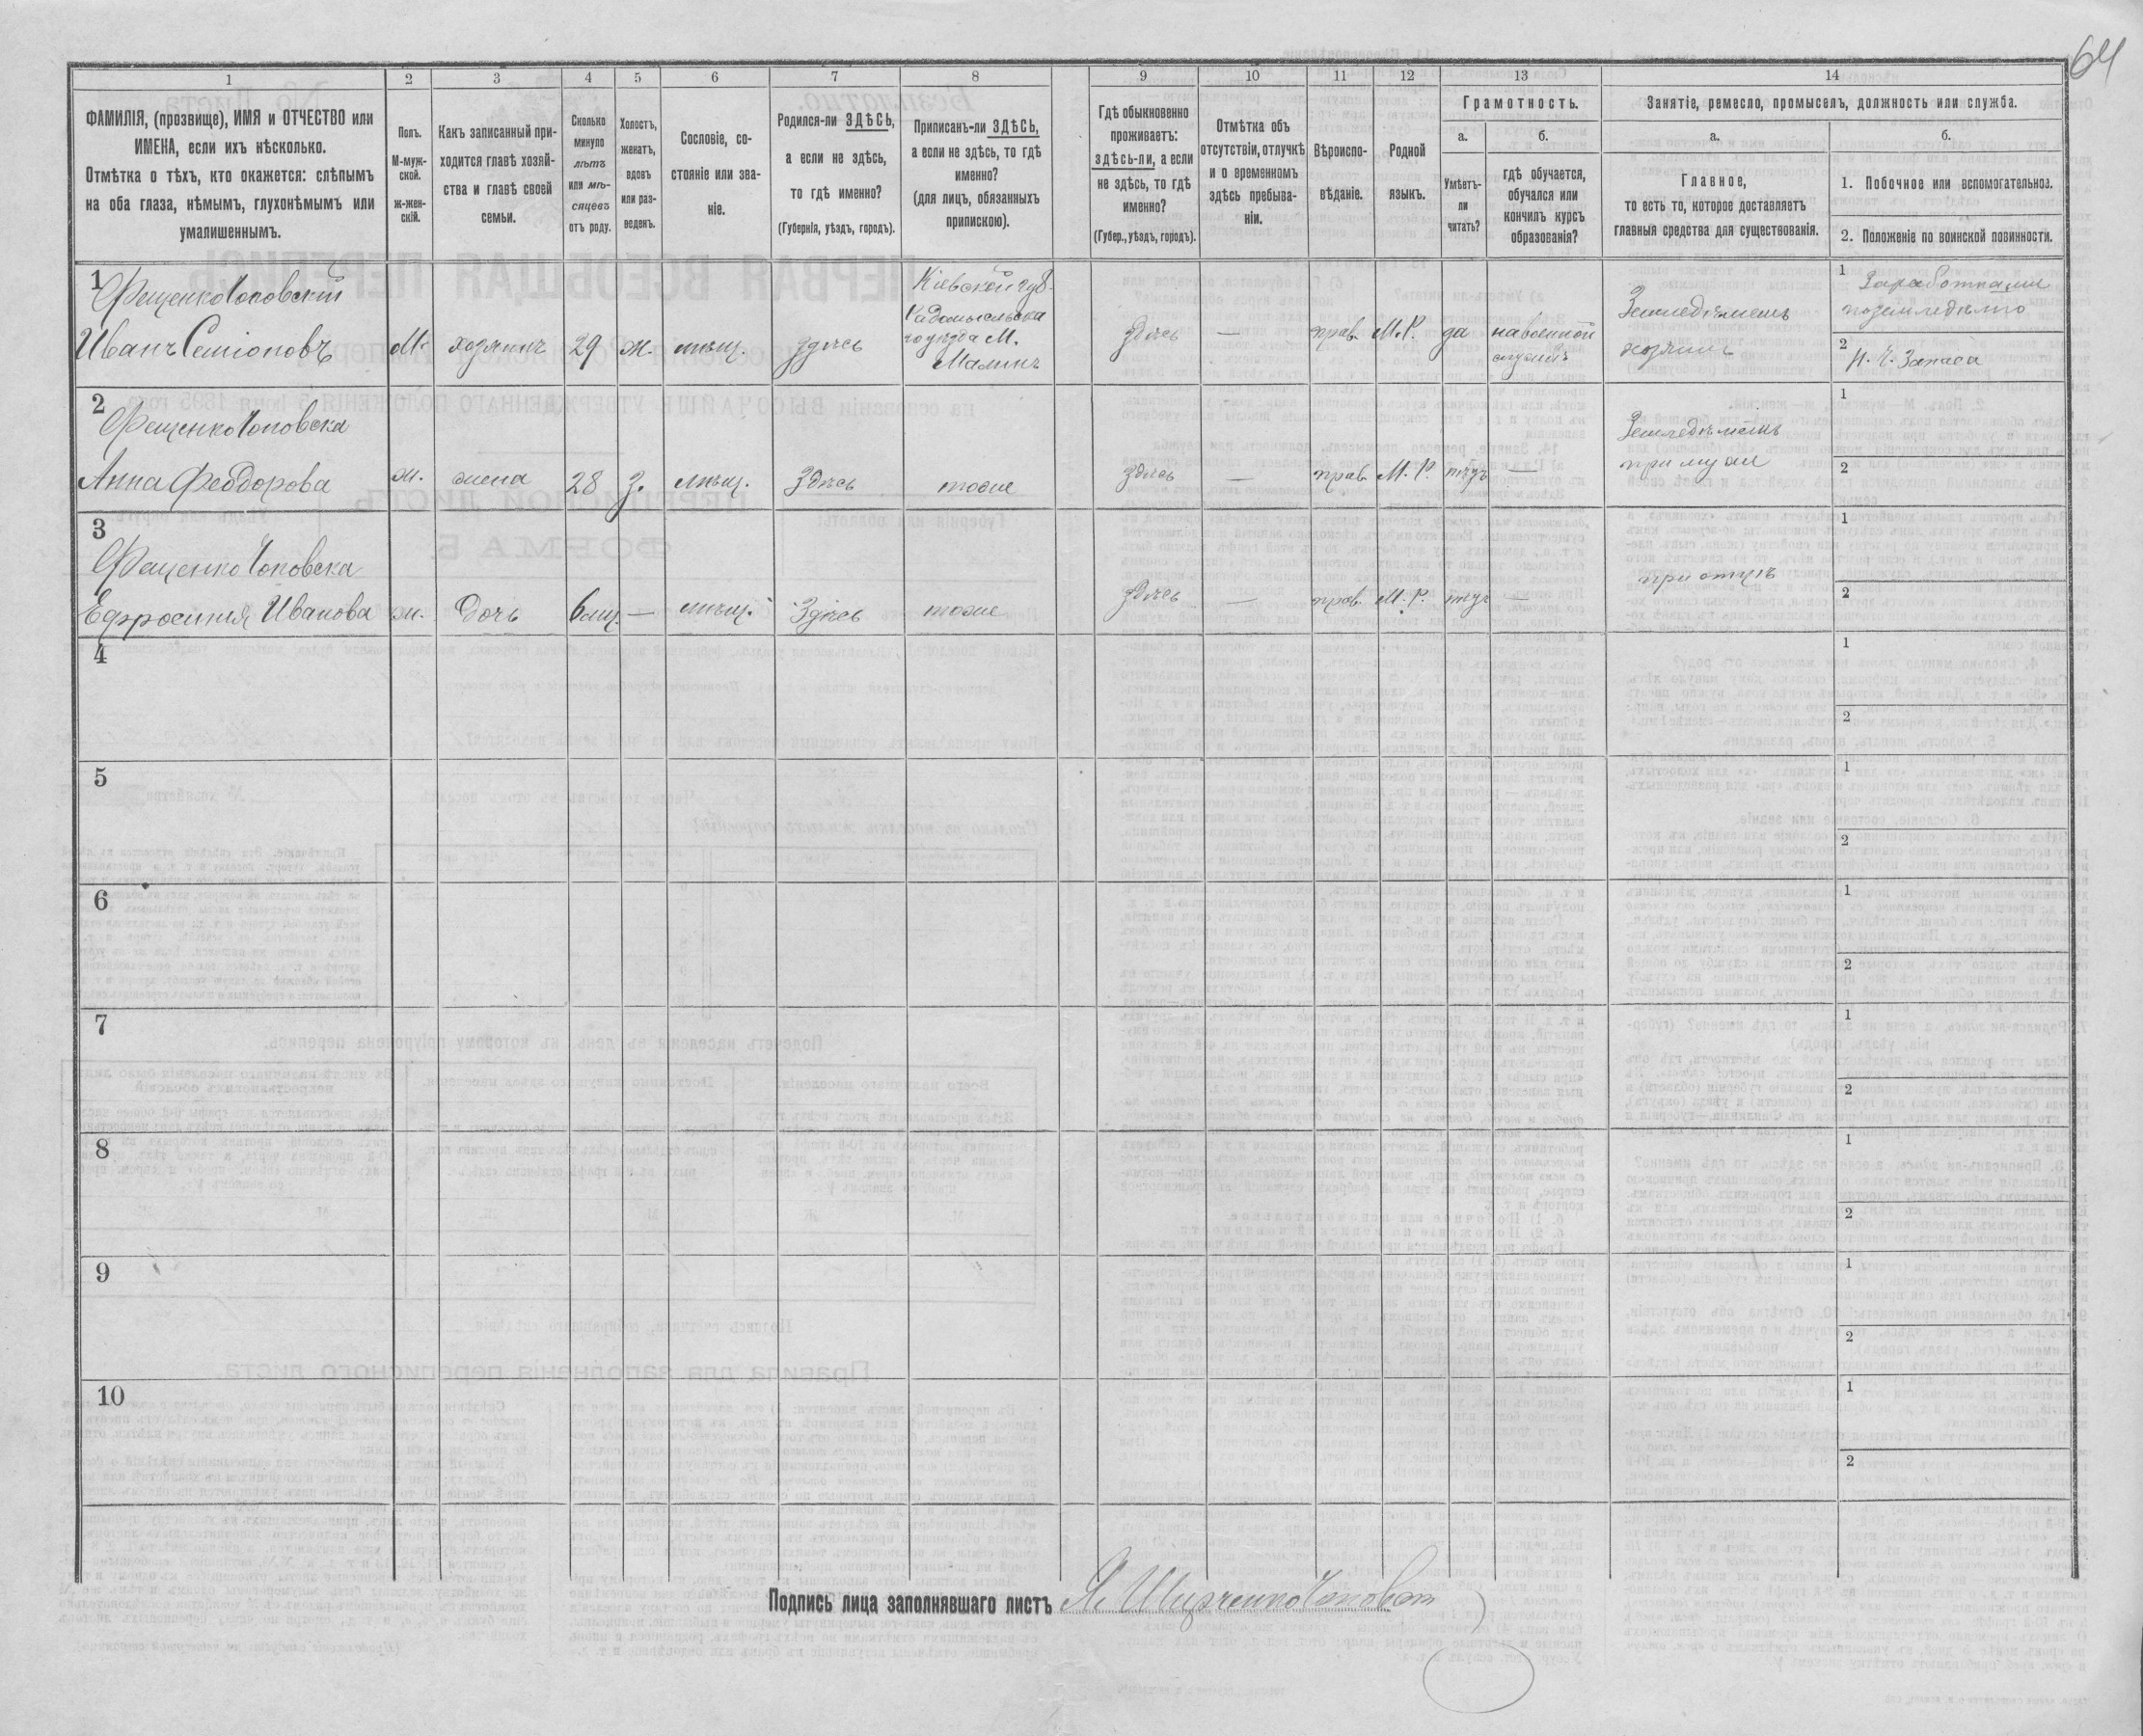 64
1
2
3
4
5
6
7
8
9
10
11
12
13
14
ФАМИЛІЯ, (прозвище), ИМЯ и ОТЧЕСТВО или
ИМЕНА, если ихъ нѣсколько.
Отмѣтка о тѣхъ, кто окажется: слѣпымъ
на оба глаза, нѣмымъ, глухонѣмымъ или
умалишеннымъ.
Полъ.
М-муж-
ской.
ж-жен-
скій.
Какъ записанный при-
ходится главѣ хозяй-
ства и главѣ своей
семьи.
Сколько
минуло
лѣтъ
или мѣ-
сяцевъ
отъ роду.
Холостъ,
женатъ,
вдовъ
или раз-
веденъ.
Сословіе, со-
стояніе или зва-
ніе.
Родился-ли ЗДѢСЬ,
а если не здѣсь,
то гдѣ именно?
(Губернія, уѣздъ, городъ).
Приписанъ-ли ЗДѢСЬ,
а если не здѣсь, то гдѣ
именно?
(для лицъ, обязанныхъ
припискою).
Гдѣ обыкновенно
проживаетъ:
здѣсь-ли, а если
не здѣсь, то гдѣ
именно?
(Губер., уѣздъ, городъ).
Отмѣтка объ
отсутствіи, отлучкѣ
и о временномъ
здѣсь пребыва-
ніи.
Вѣроиспо-
вѣданіе.
Родной
языкъ.
Грамотность.
а.
Умѣетъ-
ли
читать?
б.
гдѣ обучается,
обучался или
кончилъ курсъ
образованія?
Занятіе, ремесло, промыселъ, должность или служба.
а.
Главное,
то есть то, которое доставляетъ
главныя средства для существованія.
б.
1. Побочное или вспомогательное.
2. Положеніе по воинской повинности.
1
ФещенкоЧоповскій
Иванъ Семіоновъ
М.
хозяинъ
29
ж.
мѣщ.
здѣсь
Кіевской губ.
Радомысльска
го уѣзда М.
Малинъ
здѣсь
—
прав.
М.Р.
да
на военной
службѣ
Земледѣлецъ
хозяинъ
1
Заработками
по земледѣлію
2
Н. Ч. Запаса
2
ФещенкоЧоповска
Анна Феодорова
ж.
жена
28
З.
мѣщ.
Здѣсь
тоже
здѣсь
—
прав.
М. Р.
—
Земледѣлецъ
при мужѣ
1
2
3
ФещенкоЧоповска
Ефросинія Иванова
ж.
Дочь
6 мц.
—
мѣщ.
Здѣсь
тоже
здѣсь
—
прав.
М. Р.
—
при отцѣ
1
2
4
1
2
5
1
2
6
1
2
7
1
2
8
1
2
9
1
2
10
1
2
Подпись лица заполнявшаго листъ